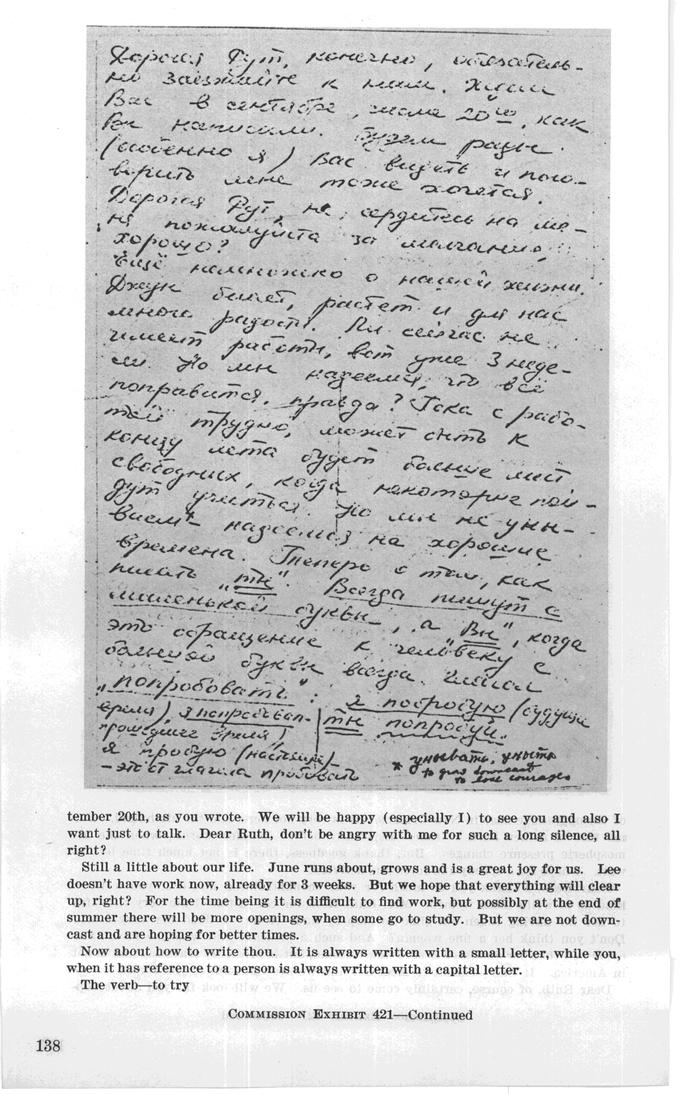 Дорогая Рут, конечно, обязатель-
но заезжайте к нам. Ждем
Вас в сентябре, числа 20го, как
Вы написали. Будем рады
(особенно я) Вас видеть и пого-
ворить мне тоже хочется.
Дорогая Рут, не сердитесь на ме-
ня пожалуйста за молчание,
хорошо?
Ещё немножко о нашей жизни.
Джун бегает, растет и для нас
много радости. Ли сейчас не
имеет работы, вот уже 3 неде-
ли. Но мы надеемся, что всё
поправится, правда? Пока с рабо-
той трудно, может быть к
концу лета будет больше мест
свободных, когда некоторые пой-
дут учиться. Но мы не уны-
ваем* надеемся на хорошие
времена. Теперь о том, как
писать "ты". Всегда пишут с
маленькой буквы, а "Вы", когда
это обращение к человеку с
большой буквы всегда.
"попробовать": я попробую (будущее
время), я попробовал-
прошедшее время)
ты попробуй.
я пробую (настоящее)
- это от глагола пробовать
* унывать, уныть
to grow downcast
to lose courage
tember 20th, as you wrote. We will be happy (especially I) to see you and also I
want just to talk. Dear Ruth, don't be angry with me for such a long silence, all
right?
Still a little about our life. June runs about, grows and is a great joy for us. Lee
doesn't have work now, already for 3 weeks. But we hope that everything will clear
up, right? For the time being it is difficult to find work, but possibly at the end of
summer there will be more openings, when some go to study. But we are not down-
cast and are hoping for better times.
Now about how to write thou. It is always written with a small letter, while you,
when it has reference to a person is always written with a capital letter.
The verb—to try
COMMISSION EXHIBIT 421—Continued
138